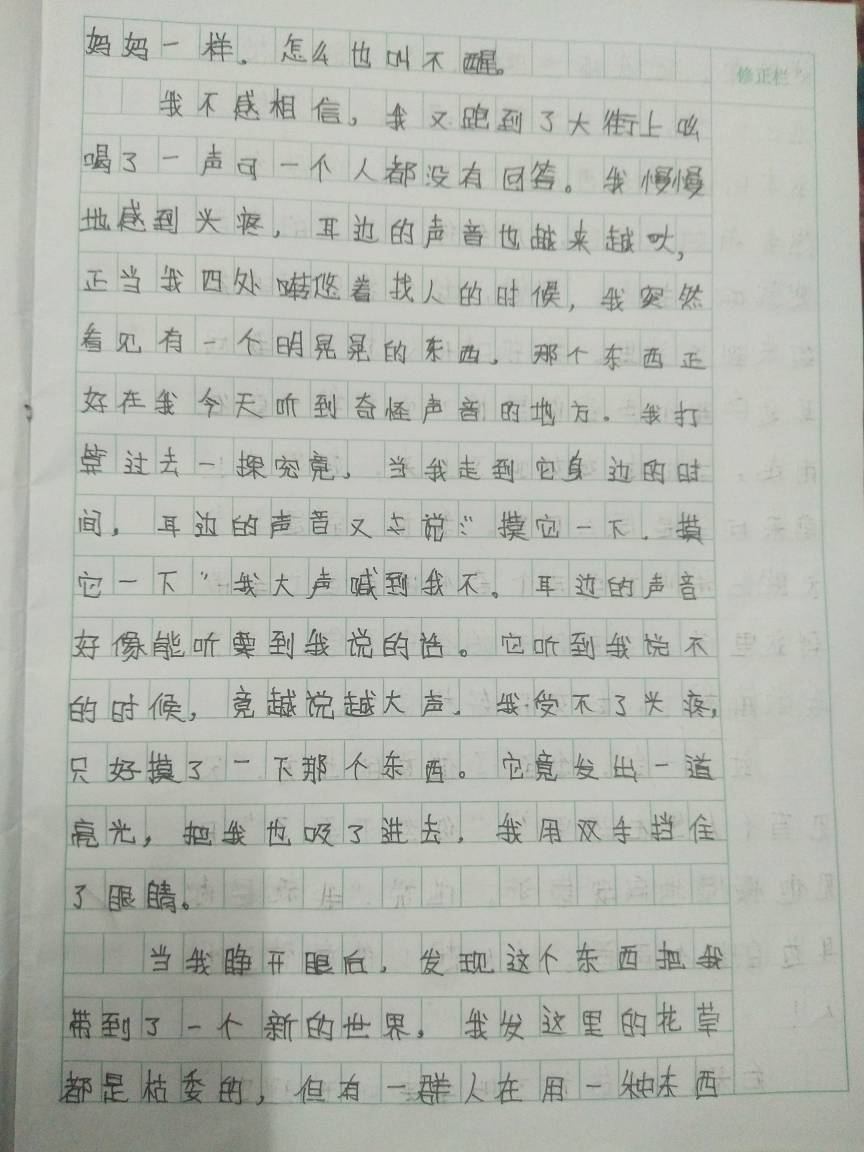 妈妈一样。怎么也叫不醒。
修正栏
我不感相信，我又跑到了大街上吆
喝了一声可一个人都没有回答。我慢慢
地感到头疼，耳边的声音也越来越吠，
正当我四处转悠着找人的时候，我突然
看见有一个明晃晃的东西。那个东西正
好在我今天听到奇怪声音的地方。我打
算过去一探究竟，当我走到它身边的时
间，耳边的声音又说：“摸它一下，摸
它一下”我大声喊到我不。耳边的声音
好像能听要到我说的话。它听到我说不
的时候，竟越说越大声，我受不了头疼，
只好摸了一下那个东西。它竟发出一道
亮光，把我也吸了进去，我用双手挡住
了眼睛。
当我睁开眼后，发现这个东西把我
带到了一个新的世界，我发这里的花草
都是枯委的，但有一群人在用一种东西